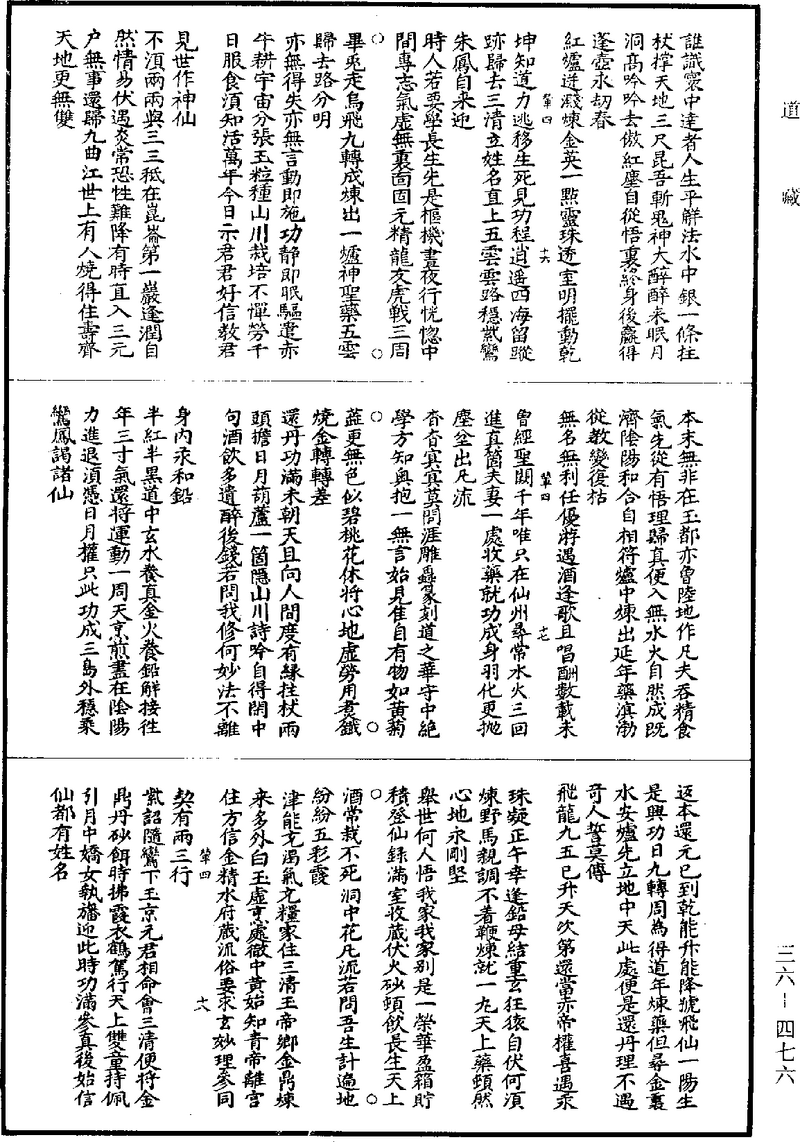 道藏
誰識寰中達者人生平解法水中銀一條拄
杖撑天地三尺昆吾斬鬼神大醉醉来眠月
洞高吟吟去傲紅塵自從悟裏終身後贏得
蓬壺永刧春
紅爐迸𤼵煉金英一點靈珠透室明擺動乾
筆四
十六
坤知道力逃移生死見功程逍遥四海留蹤
跡歸去三清立姓名直上五雲雲路穩紫鸞
朱鳳自来迎
時人若要學長生先是樞機晝夜行恍惚中
間專志氣虛無裏面固元精龍友虎戰三周
○○
畢兎走烏飛九轉成煉出一爐神聖藥五雲
歸去路分明
亦無得失亦無言動即施功静即眠驅遣赤
牛耕宇宙分張玉粒種山川栽培不憚勞千
日服食湏知活萬年今日示君君好信教君
見世作神仙
不湏兩兩與三三秪在崑崙第一巖逢潤自
然情易伏遇炎常恐性難降有時直入三元
户無事還歸九曲江世上有人燒得住壽齊
天地更無雙
本末無非在玉都亦曾陸地作凡夫吞精食
氣先從有悟理歸真便入無水火自然成既
濟隂陽和合自相符爐中煉出延年藥溟渤
從教變復枯
無名無利任優游遇酒逢歌且唱酬數載未
筆四
十七
曾經聖闕千年唯只在仙州尋常水火三回
進真箇夫妻一處收藥就功成身羽化更抛
塵坌出凡流
杳杳冥冥莫問涯雕蟲篆刻道之華守中絶
學方知奥抱一無言始見佳自有物如黄菊
○○
蘂更無色似碧桃花休將心地虛勞用煮鐵
燒金轉轉差
還丹功滿未朝天且向人間度有縁拄杖兩
頭擔日月葫蘆一箇隱山川詩吟自得閑中
句酒飲多遺醉後錢若問我修何妙法不離
身内汞和鉛
半紅半黑道中玄水養真金火養鉛解接往
年三寸氣還將運動一周天烹煎盡在隂陽
力進退湏憑日月權只此功成三島外穩乘
鸞鳳謁諸仙
返本還元已到乾能升能降號飛仙一陽生
是興功日九轉周為得道年煉藥但尋金裏
水安爐先立地中天此處便是還丹理不遇
奇人誓莫傳
飛龍九五已升天次第還當赤帝權喜遇汞
珠凝正午幸逢鉛母結重玄狂猿自伏何湏
煉野馬親調不着鞭煉就一丸天上藥頓然
心地永剛堅
舉世何人悟我家我家别是一榮華盈箱貯
積登仙錄滿室收蔵伏火砂頓飲長生天上
○○
酒常栽不死洞中花凡流若問吾生計遍地
紛紛五彩霞
津能充渴氣充糧家住三清玉帝鄉金鼎煉
来多外白玉虛烹處徹中黄始知青帝離宫
住方信金精水府蔵流俗要求玄妙理參同
筆四
十八
契有兩三行
紫詔隨鸞下玉京元君相命會三清便將金
鼎丹砂餌時拂霞衣鶴駕行天上雙童持佩
引月中嬌女執旛迎此時功滿參真後始信
仙都有姓名
三六–四七六